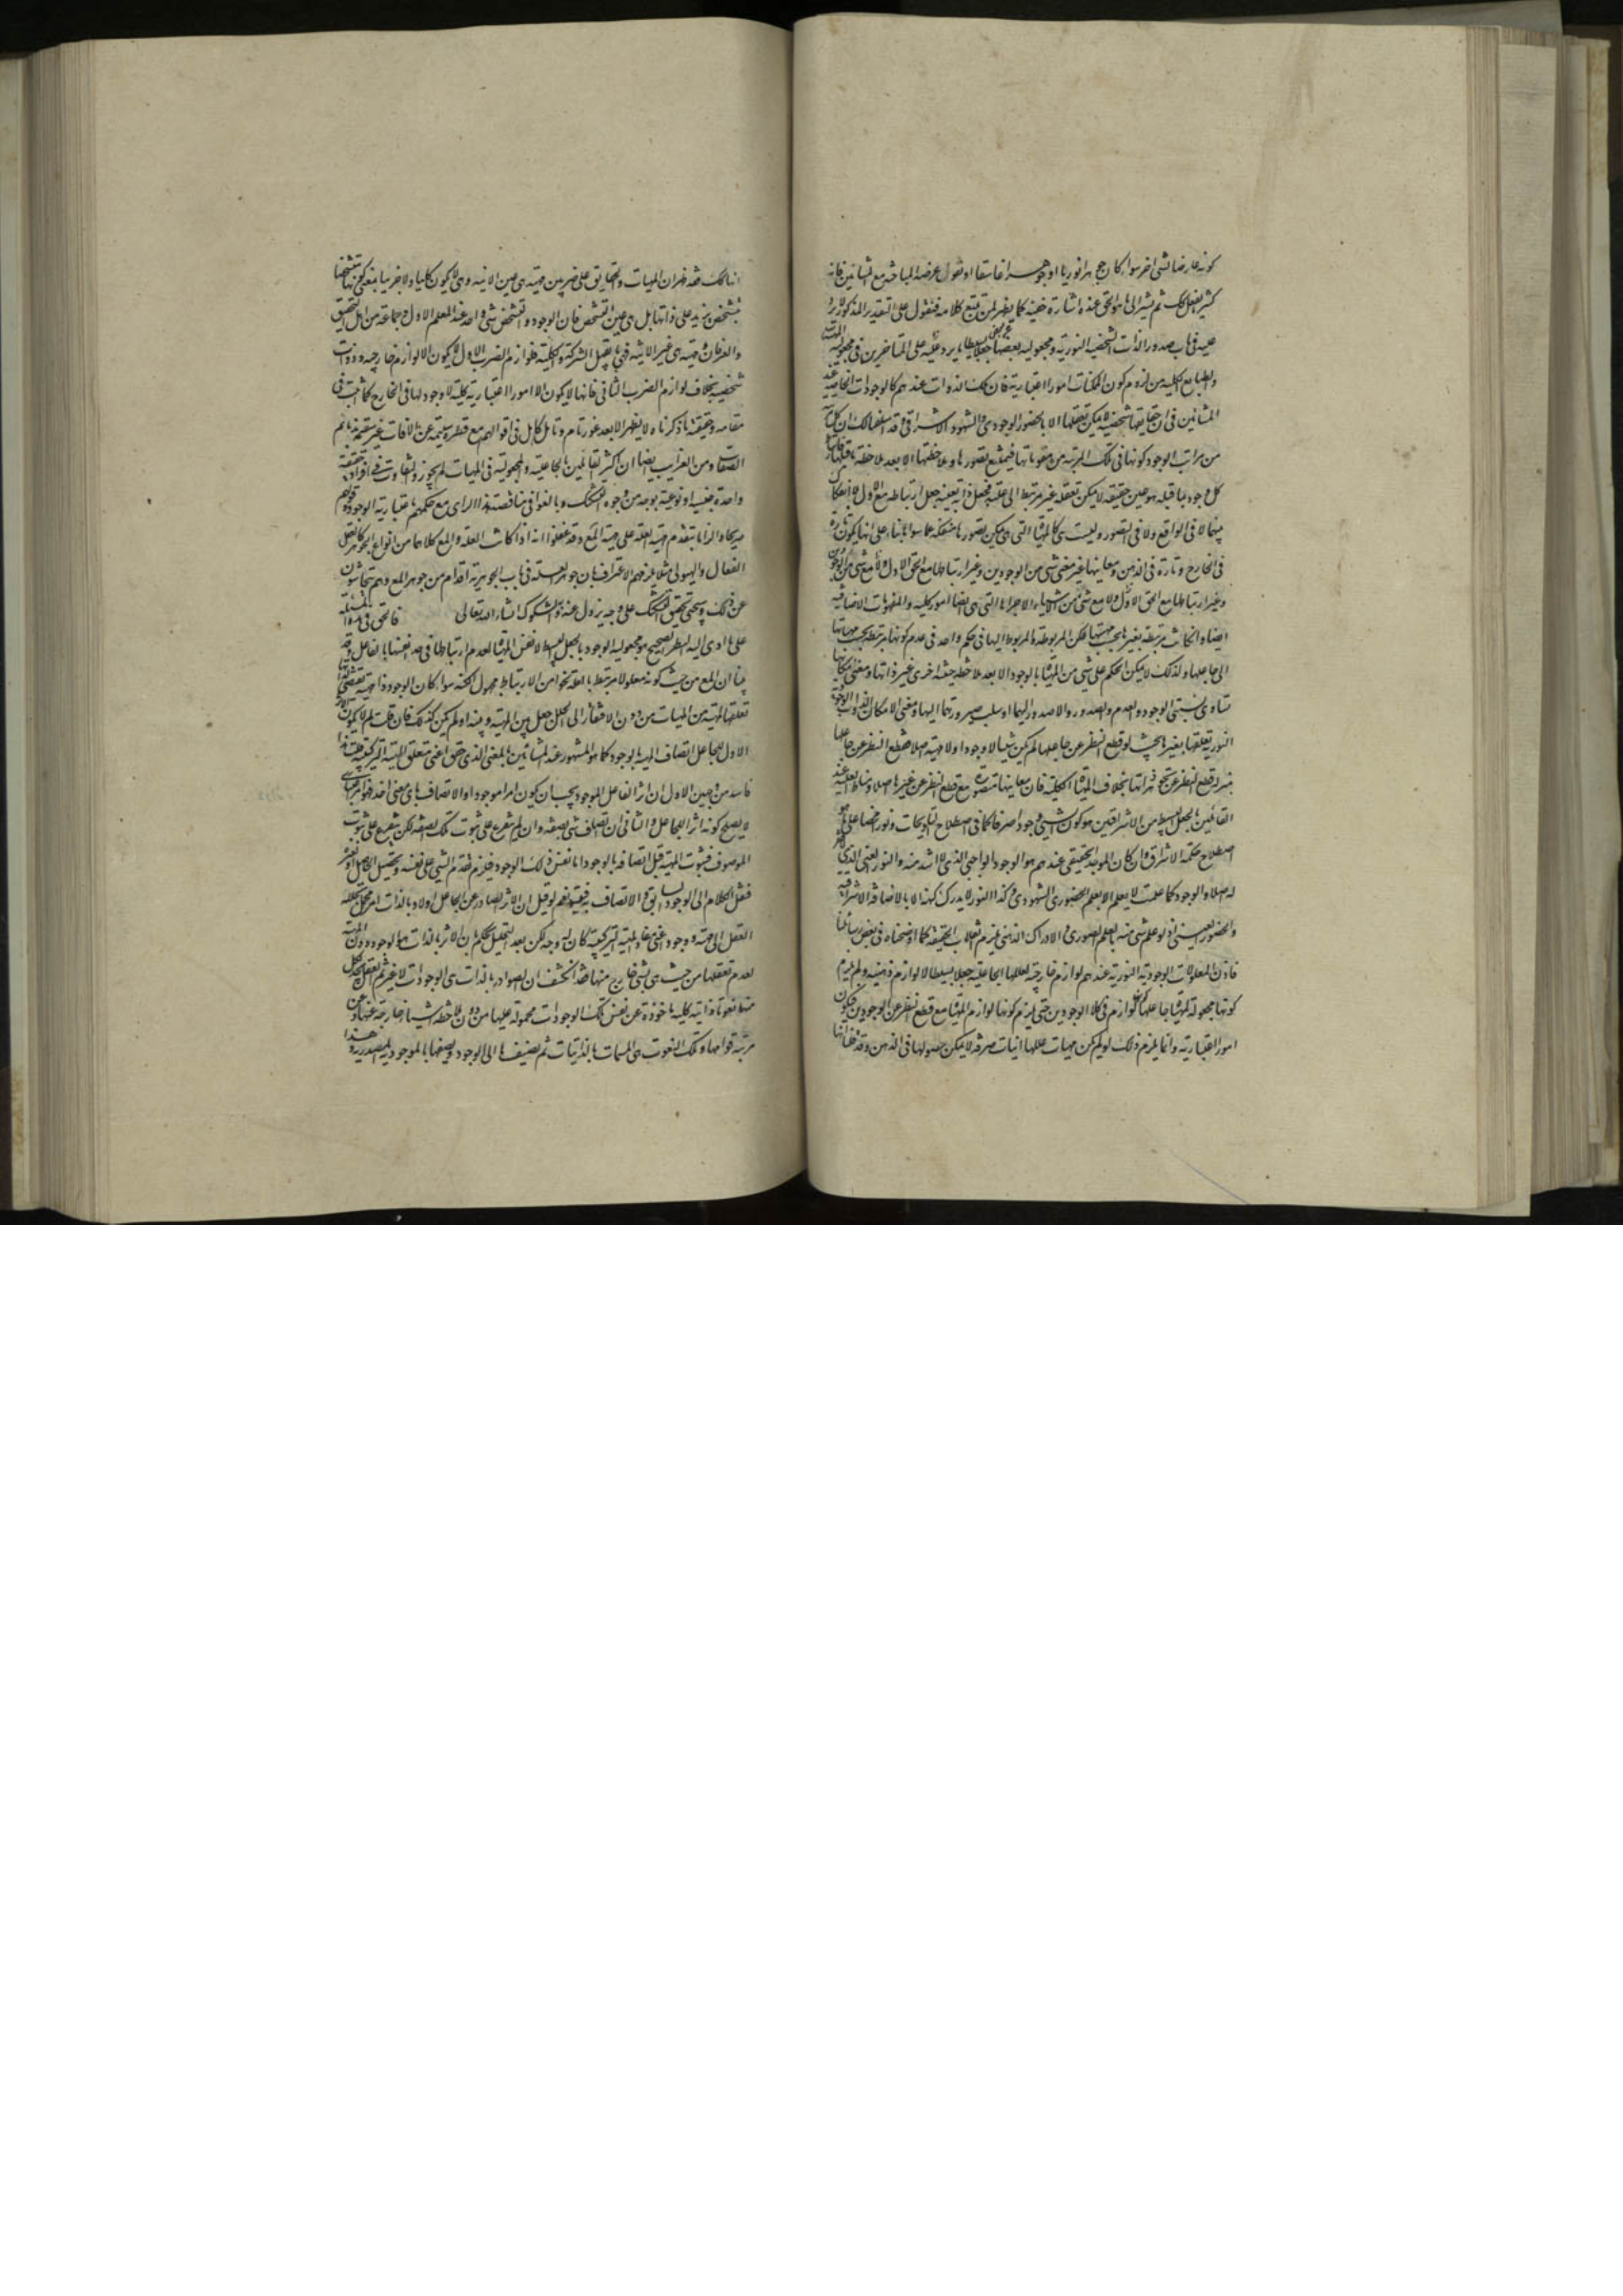 كونه عارضا لشی اخر سواء كان جوهرا نوريا او جوهرا غاسقا او نقول غرضه المباحثه مع المشائين فانه
كثيرا يفعل كك ثم يشير الى ما هو الحق عنده اشارة خفيه كما يظهر لمن تتبع كلامه فنقول على التقدير المذكور لا يرد
عليه فی باب صدور الذات الشخصيه النوريه و مجعوليه بعضها عن بعض جعلا بسيطا ما يرد عليه على المتاخرين فی مجعوليه المهيات
والطبايع الكليه من لزوم كون الممكنات امورا اعتباريه فان تلك الذوات عندهم كالوجودات الخاصه عند
المشائين فی ان حقايقها شخصيه لا يمكن تعقلها الا بالحضور الوجودی والشهود الاشراقی و قد اسلفنا لك ان كل مرتبه
من مراتب الوجود كونها فی تلك المرتبه من مقوماتها فيمتنع تصورها و ملاحظتها الا بعد ملاحظه ما قبلها فارتباط
كل وجود بما قبله هو عين حقيقته لا يمكن تعقله غير مرتبط الى علته فجعل ذاته بعينه جعل ارتباطه مع الاول لا انفكاك
بينهما لا فی الواقع ولا فی التصور وليست هی كالمهيات التی يمكن تصورها منفكه عما سواها بناء على انها يكون تارة
فی الخارج و تارة فی الذهن و معانيها غير معنى شی من الوجودين و غير ارتباطها مع الحق الاول ولا مع شی من الوجود
و غير ارتباطها مع الحق الاول ولا مع شی من الاشياء الا جزائها التی هی ايضا امور كليه والمفهومات الاضافيه
ايضا وان كانت مرتبطه بغيرها بحسب مهيتها لكن المربوطه والمربوط اليها فی حكم واحد فی عدم كونها مرتبطه بحسب مهياتها
الى جاعلها ولذلك لا يمكن الحكم على شی من المهيات بالوجود الا بعد ملاحظه حيثيه اخرى غير ذاتها و معنى امكانها
تساوی نسبتی الوجود والعدم والصدور واللاصدور اليها او سلب ضرورتهما اليها و معنى الامكان الذوات الوجوديه
النوريه تعلقها بغيرها بحيث لو قطع النظر عن جاعلها لم يكن شيئا لا وجودا ولا مهيه اصلا فقطع النظر عن جاعلها
بمنزله قطع النظر عن تجوهر ذاتها بخلاف المهيات الكليه فان معانيها متصوره مع قطع النظر عن غيرها اصلا و مناط الغنيه عند
القائلين بالجعل البسيط من الاشراقيين هو كون الشی وجودا صرفا كما فی اصطلاح التلويحات و نورا محضا على ما هو
اصطلاح حكمه الاشراق وان كان الموجود الحقيقی عندهم هو الوجود الواجبی الذی لا اشد منه والنور الغنی الذی لا فقر
له اصلا والوجود كما علمت لا يعلم الا بالعلم الحضوری الشهودی و كذا النور لا يدرك كنهه الا بالاضافه الاشراقيه
والحضور العينی اذ لو علم شی منه بالعلم الصوری والادراك الذهنی يلزم انقلاب الحقيقه كما اوضحناه فی بعض رسائلنا
فاذن المعلولات الوجوديه النوريه عندهم لوازم خارجيه لعللها الجاعليه جعلا بسيطا لا لوازم ذهنيه ولم يلزم
كونها مجعوله المهيات جاعلها لوازم فی كلا الوجودين حتى يلزم كونها لوازم المهيات مع قطع النظر عن الوجودين فيكون
امورا اعتباريه وانما يلزم ذلك لو لم يكن مهيات عللها انيات صرفه لا يمكن حصولها فی الذهن و قد قلنا انها
انها كك فقد ظهر ان المهيات والحقايق على ضربين مهيه هی عين الانيه و هی لا يكون كليا ولا جزئيا بمعنى كونها متشخصا
بتشخص يزيد على ذاتها بل هی عين التشخص فان الوجود والتشخص شی واحد عند المعلم الاول و جماعه من اهل التحقيق
والعرفان و مهيه هی غير الانيه فهی ما يقبل الشركه والكليه فلوازم الضرب الاول لا يكون الا لوازم خارجيه و ذوات
شخصيه بخلاف لوازم الضرب الثانی فانها لا يكون الا امورا اعتباريه كليه لا وجود لها فی الخارج كما ثبت فی
مقامه و حقيقه ما ذكرناه لا يظهر الا بعد غور تام و تامل كامل فی اقوالهم مع فطره سليمه عن الافات غير سقيمه بذمائم
الصفات و من الغرايب ايضا ان اكثر القائلين بالجاعليه والمجعوليه فی المهيات لم يجوزوا التفاوت فی افراد حقيقه
واحدة جنسيه او نوعيه بوجه من وجوه التشكيك و بالغوا فی مناقضه هذا الرای مع حكمهم باعتباريه الوجود وقولهم
صريحا والزاما بتقدم مهيه العله على مهيه المع وقد غفلوا انه اذا كانت العله والمع كلاهما من انواع الجوهر كالعقل
الفعال والهيولى مثلا يلزمهم الاعتراف بان جوهر العله فی باب الجوهريه اقدم من جوهر المع وهم يتحاشون
عن ذلك وسيجئ تحقيق التشكيك على وجه يزول عنه الشكوك انشاء الله تعالى فالحق فی هذه المسئله
على ما ادى اليه النظر الصحيح هو مجعوليه الوجود بالجعل البسيط لا نفس المهيات لعدم ارتباطها فی حد انفسها بالفاعل وقد
بينا ان المع من حيث كونه معلولا مرتبط بالعله نحوا من الارتباط مجهول الكنه سواء كان الوجود ذا مهيه تقتضی ذاتها
تعلقها لمهيه من المهيات من دون الافتقار الى تخلل جعل بين المهيه و بينه او لم يكن كذلك فان قلت لم لا يكون الاثر
الاول للجاعل اتصاف المهيه بالوجود كما هو المشهور عند المشائين بالمعنى الذی حقق اعنی متعلق الهيئه التركيبيه قلنا هذا
فاسد من وجهين الاول ان اثر الفاعل الموجود يجب ان يكون امرا موجودا والاتصاف بای معنى اخذ فهو امر اعتباری
لا يصلح كونه اثرا للجاعل والثانی ان اتصاف شی بصفه وان لم يتفرع على ثبوت تلك الصفه لكن يتفرع على ثبوت
الموصوف فثبوت المهيه قبل اتصافه بالوجود اما نفس ذلك الوجود فيلزم تقدم الشی على نفسه و تحصيل الحاصل او غيره
فننقل الكلام الى الوجود السابق والاتصاف به فيتسلسل نعم لو قيل ان الاثر الصادر عن الجاعل اولا و بالذات امر مجمل يحلله
العقل الى مهيه و وجود اعنی مفاد الهيئه التركيبيه كان له وجه لكن بعد التحليل نحكم بان الاثر بالذات هو الوجود دون المهيه
لعدم تعلقها من حيث هی بشی خارج منها فقد انكشف ان الصوادر بالذات هی الوجودات لا غير ثم العقل يجد لكل
منها نعوتا ذاتيه كليه ماخوذة عن نفس تلك الوجودات محموله عليها من دون ملاحظه اشياء خارجه عنها و عن
مرتبه قوامها و تلك النعوت هی المسمات بالذاتيات ثم يضيفها الى الوجود و يصفها بالموجوديه المصدريه و هذا